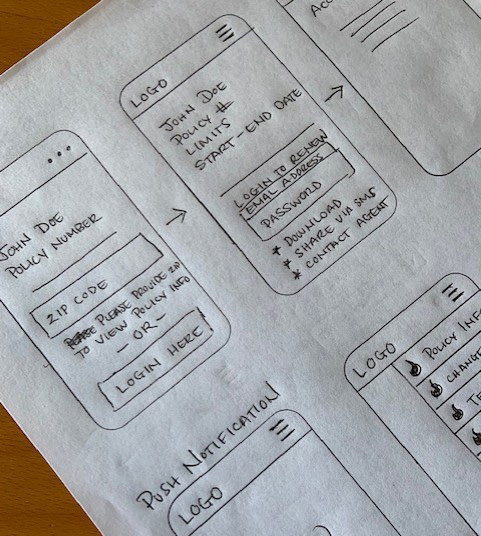 JOHN DOE
POLICY NUMBER
ZIP CODE
PLEASE PROVIDE ZIP
TO VIEW POLICY INFO
- OR -
LOGIN HERE
LOGO
JOHN DOE
POLICY #
LIMITS
START - END DATE
LOGIN TO RENEW
EMAIL ADDRESS
PASSWORD
* DOWNLOAD
* SHARE VIA SMS
* CONTACT AGENT
PUSH NOTIFICATION
LOGO
LOGO
POLICY INF
CHANGE